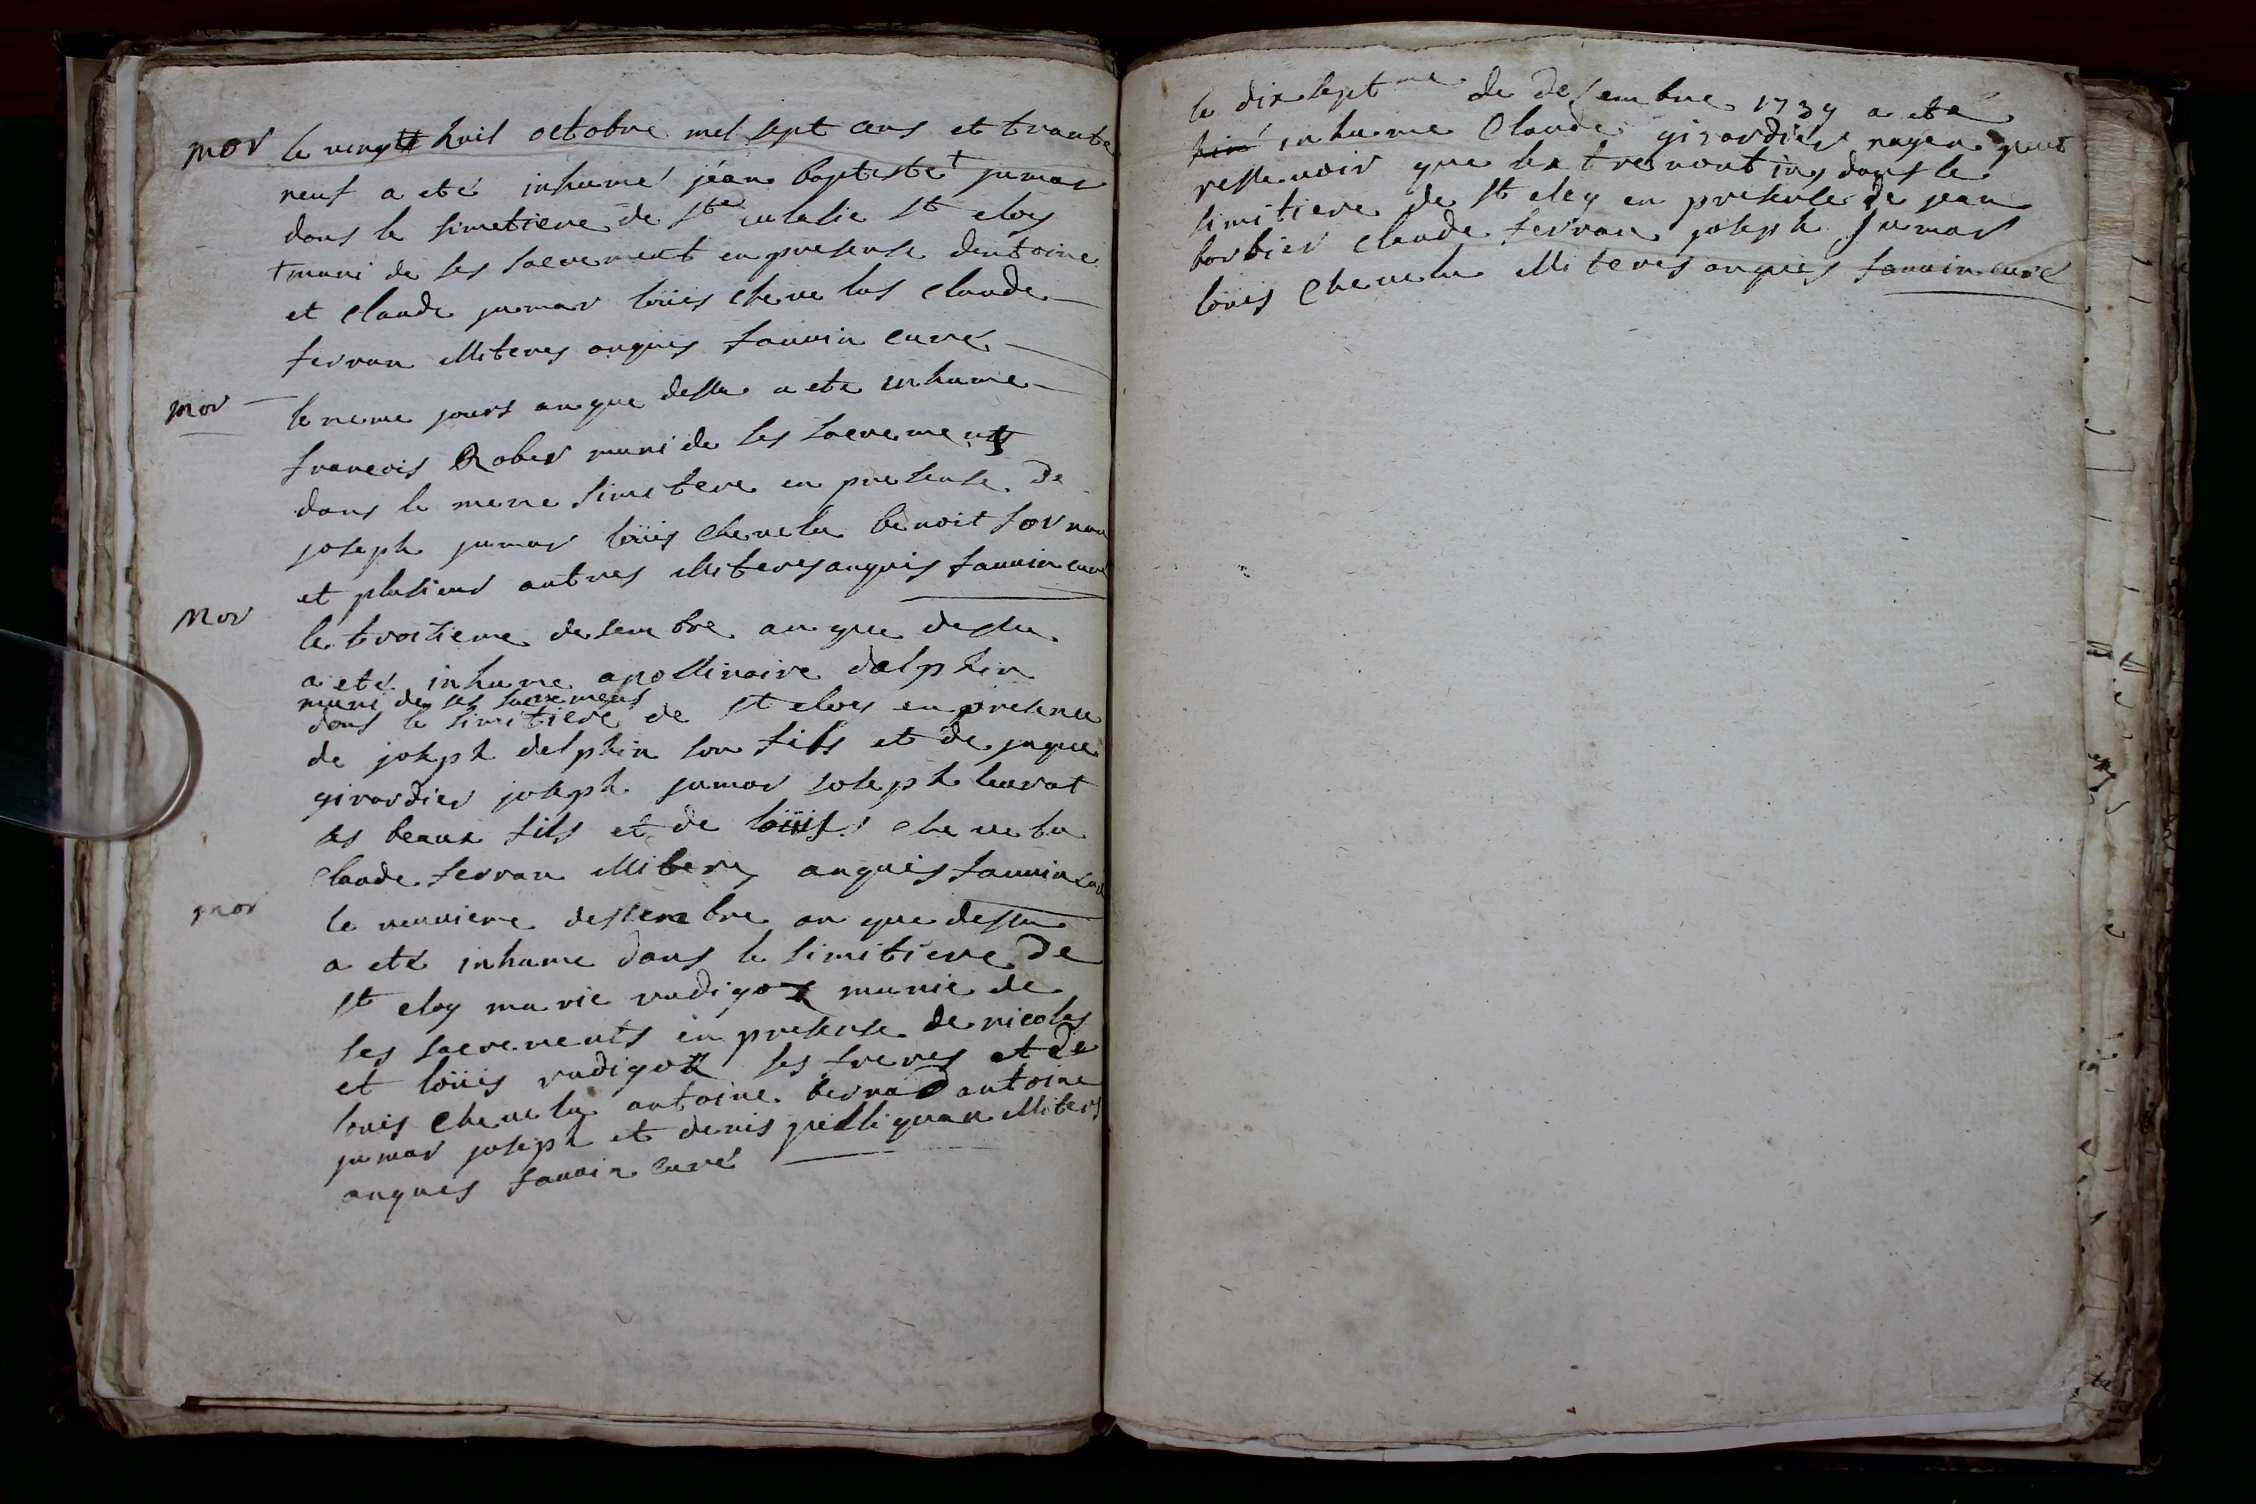 mor le vingtt huit octobre mel sept cens et trante
neuf a eté inhumé jéan baptiste + jumar
dans le simetiere de Ste eulalie St eloy
+ muni de ses sacrement en presense dentoine
et claude jumar loüis chevelus claude
ferran illiteres enquis fauvin curé
mor le meme jours an que dessu a ete inhume
francois Rober muni de ses sacrements
dans le meme simetere en presense de
joseph jumar loüis chevelu benoit
et plusieur autres illiteres enquis fauvin curé
Mor le troisieme desembre an que dessu
a eté inhume apollinaire dalphin
muni de ses sacremens
dans le simitiere de St eloy en presence
de joseph delphin son fils et de jaque
girardier joseph jumar joseph leurat
ses beaux fils et de loüis chevelu
claude ferran illiteres enquis fauvin curé
mor le neuvieme dessembre an que dessu
a eté inhume dans le simitiere de
St eloy marie radigox munie de
ses sacrements en presense de nicolas
et loüis radigox ses freres et de
louis chevelu antoine bernad antoine
jumar joseph et denis illiters
enques fauvin curé
le dix septme de desembre 1739 a eté
inhume claude girardier nayen peut
ressevoir que lextremontins dans le
simitiere de St eloy en presense de jean
barbier claude ferran joseph jumar
loüis chevelu illiteres enquis fauvin curé